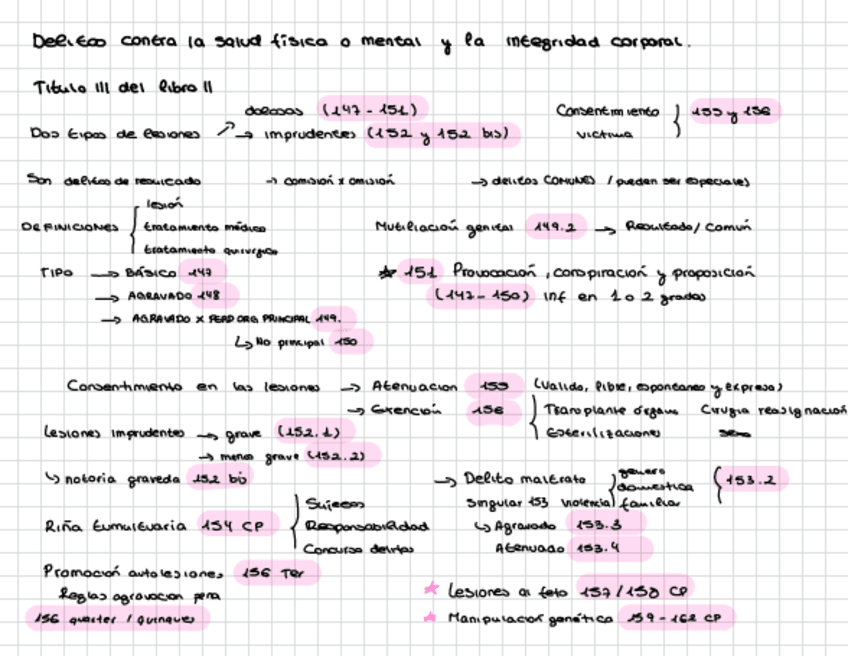 Delitos contra la salud física o mental y la integridad corporal.
Título III del libro II
dolosas (147 - 151)
Dos tipos de lesiones → imprudentes (152 y 152 bis)
Consentimiento víctima } 155 y 156
Son delitos de resultado → comisión x omisión → delitos COMUNES / pueden ser especiales
DEFINICIONES { lesión
tratamiento médico
tratamiento quirurgico
Mutilación genital 149.2 → Resultado / Común
TIPO → BÁSICO 147
→ AGRAVADO 148
→ AGRAVADO x PERD ORG PRINCIPAL 149.
↳ No principal 150
* 151 Provocación, conspiración y proposición
(147 - 150) inf en 1 o 2 grados
Consentimiento en las lesiones → Atenuacion 155 (valido, libre, espontaneo y expreso)
→ Exención 156 { Transplante órgano Cirugia reasignación sexo
Esterilizaciones
Lesiones imprudentes → grave (152.1)
→ menos grave (152.2)
↳ notoria graveda 152 bis
→ Delito maltrato singular 153 violencia } genero
domestica
familiar { 153.2
↳ Agravado 153.3
Atenuado 153.4
Riña tumultuaria 154 CP { Sujetos
Responsabilidad
Concurso delitos
Promoción autolesiones 156 Ter
Reglas agravacion pena
156 quarter / quinques
★ Lesiones al feto 157 / 158 CP
★ Manipulacion genética 159 - 162 CP